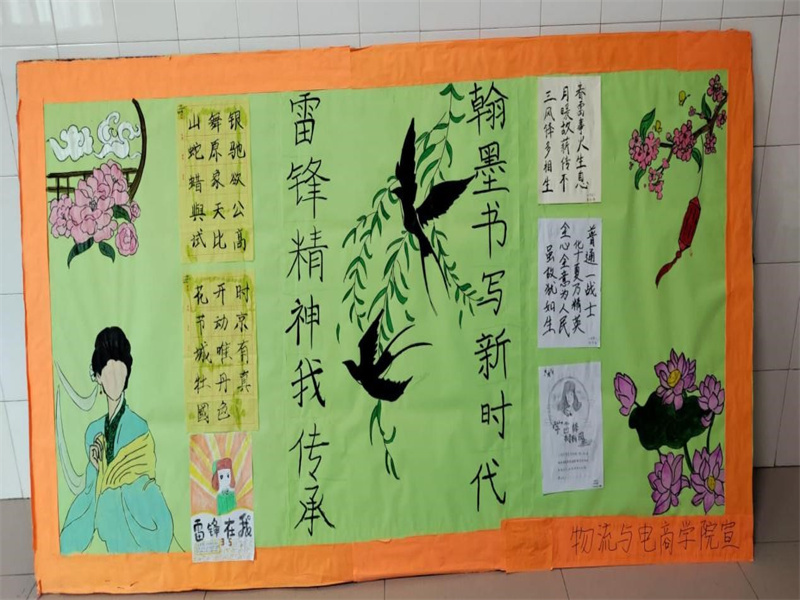 翰墨书写新时代
雷锋精神我传承
山舞银
蛇原驰
蜡象欲
與天公
试比高
花开时
节动京
城唯有
牡丹真
國色
雷锋在我
三月春
风暖雷
锋故事
多人
相传生
生不息
普通一战士
化十夏乃精英
全心全意为人民
虽故犹如生
物流与电商学院宣